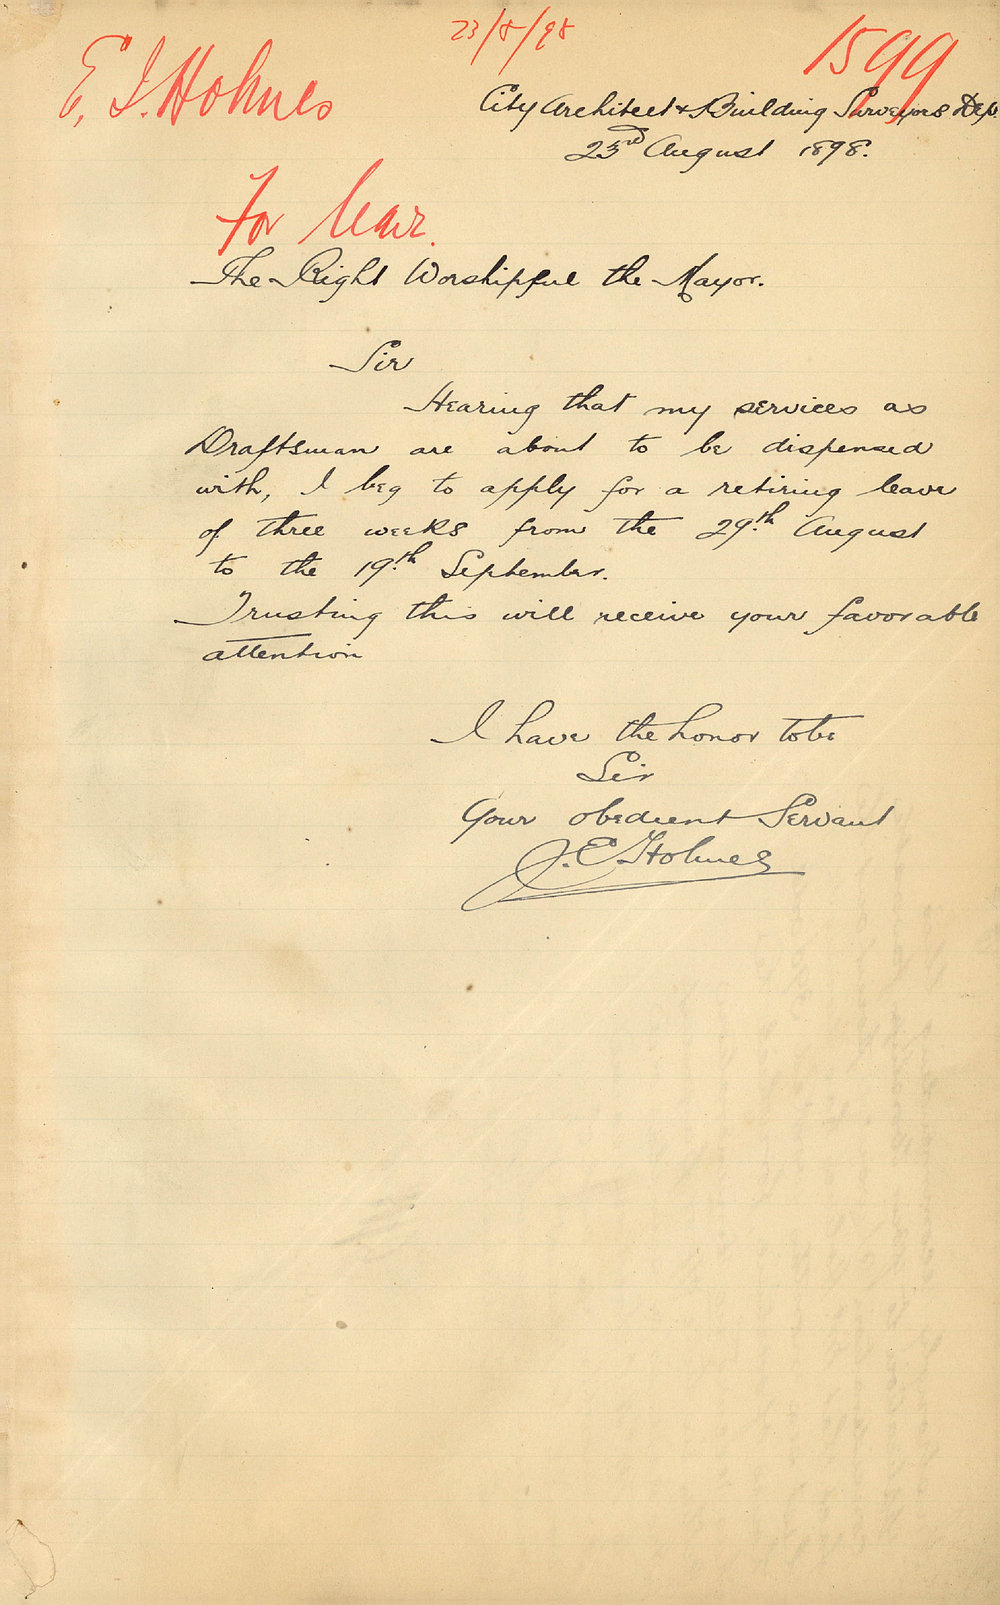 23/8/98
1599
E. J. Holmes
City Architect & Building Surveyors Dep.
23rd August 1898.
For leave.
The Right Worshipful the Mayor.
Sir
Hearing that my services as
Draftsman are about to be dispensed
with, I beg to apply for a retiring leave
of three weeks from the 29th August
to the 19th September.
Trusting this will receive your favorable
attention
I have the honor to be
Sir
Your obedient Servant
J. E. Holmes